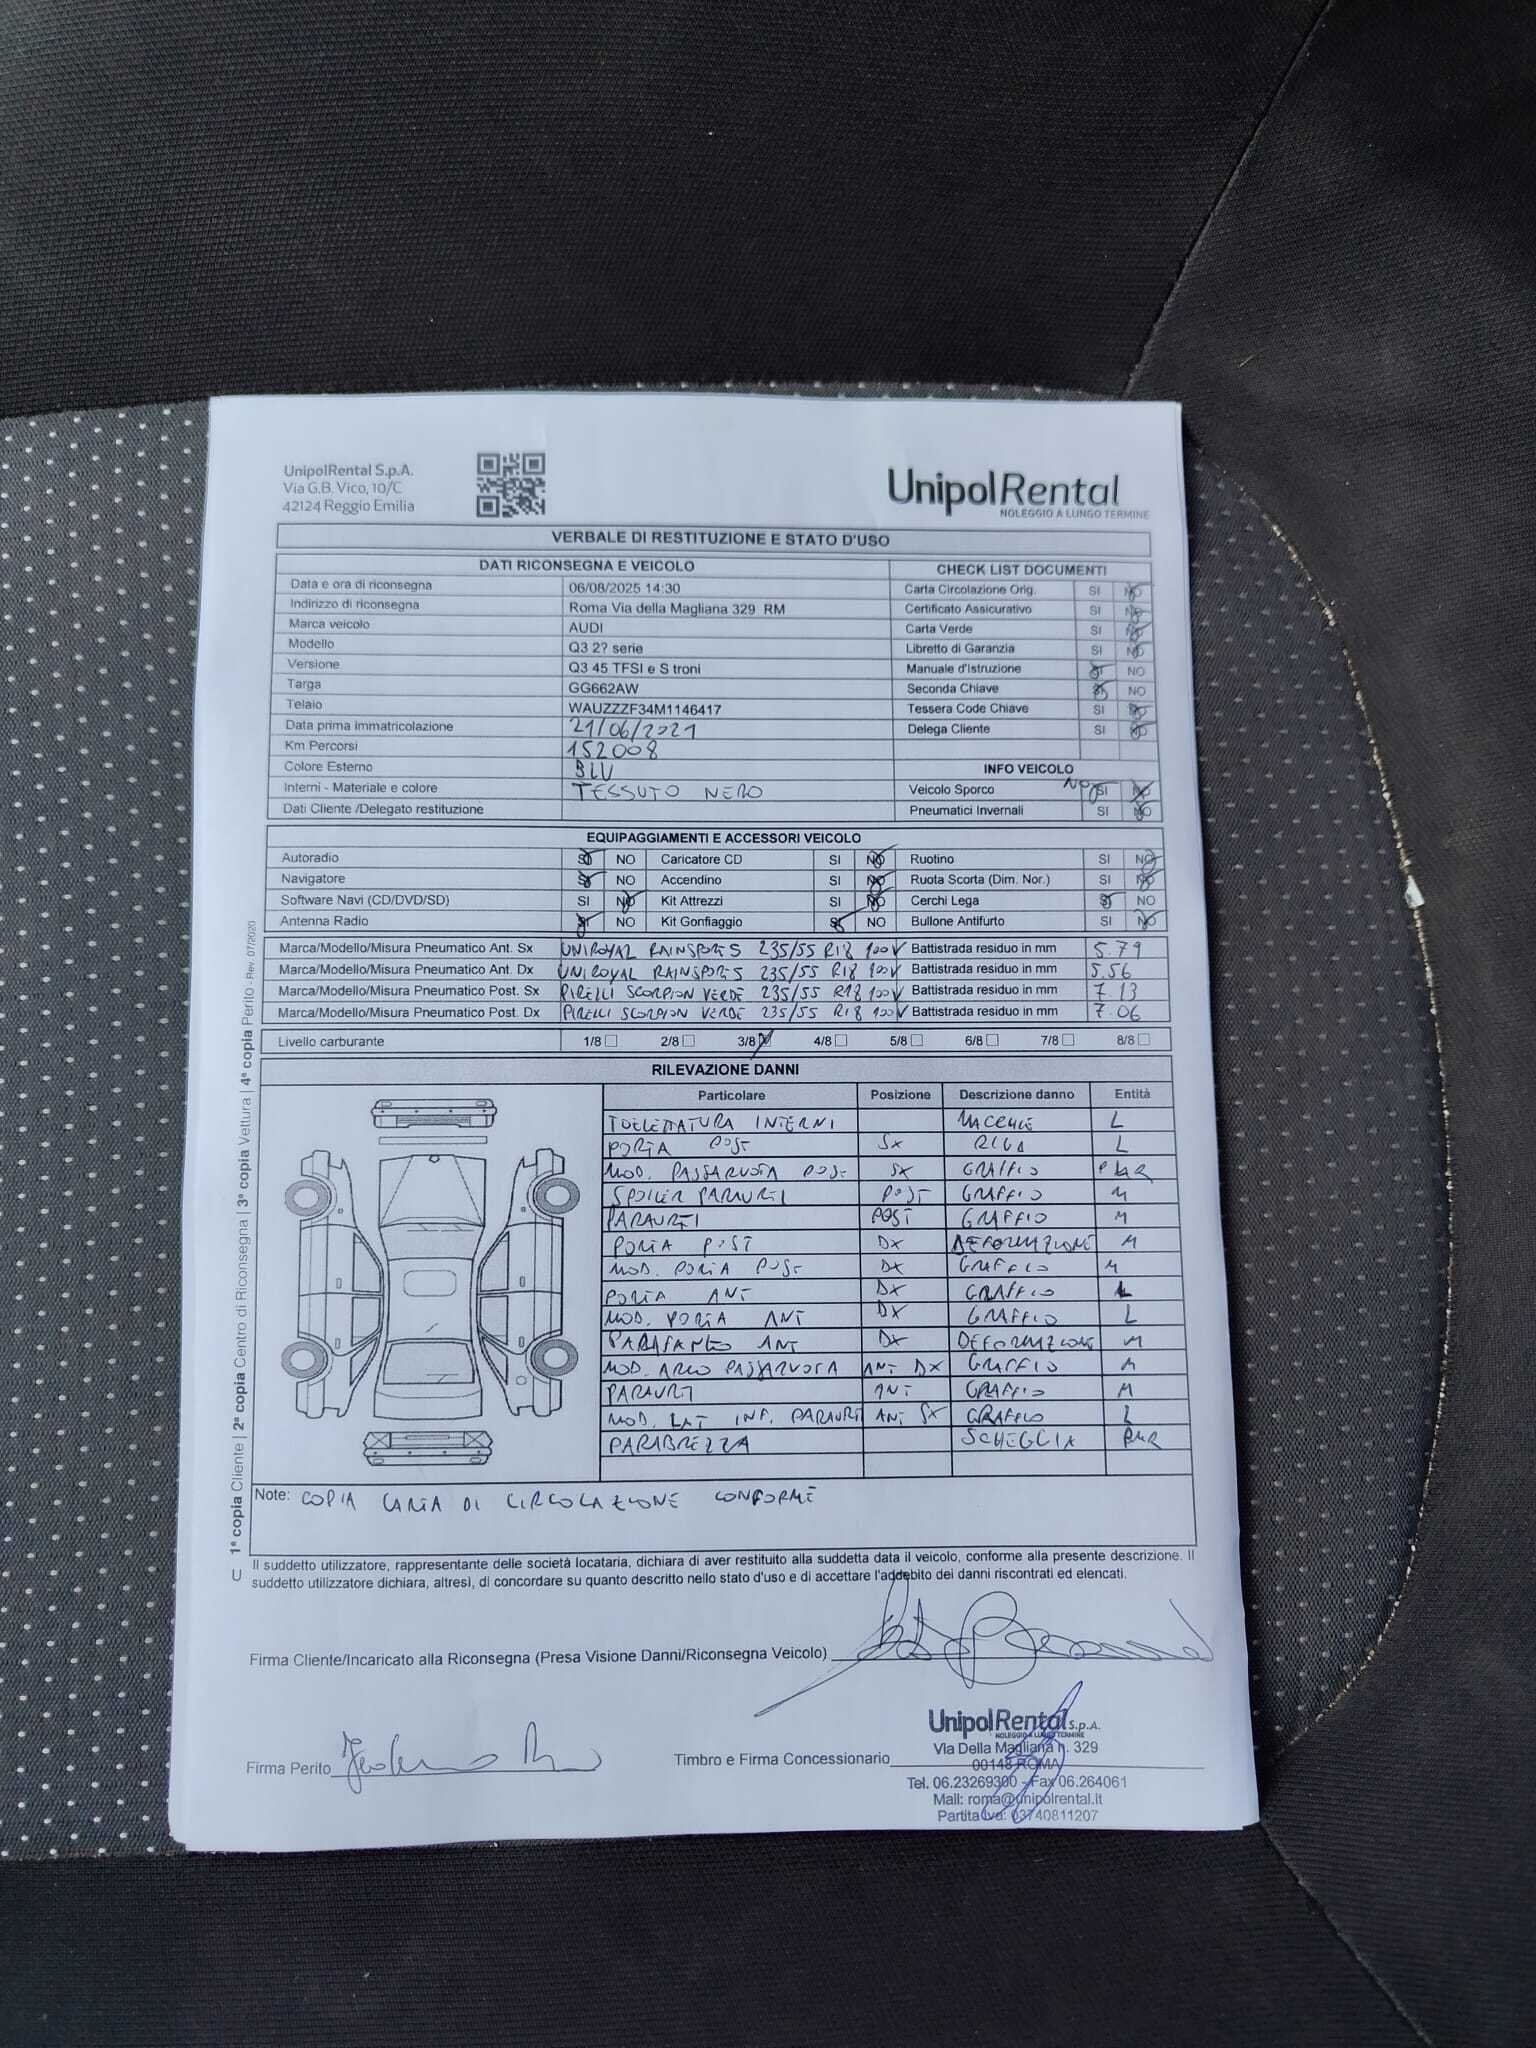 UnipolRental S.p.A.
Via G.B. Vico, 10/C
42124 Reggio Emilia
UnipolRental
NOLEGGIO A LUNGO TERMINE
VERBALE DI RESTITUZIONE E STATO D'USO
DATI RICONSEGNA E VEICOLO
Data e ora di riconsegna 06/08/2025 14:30
Indirizzo di riconsegna Roma Via della Magliana 329 RM
Marca veicolo AUDI
Modello Q3 2? serie
Versione Q3 45 TFSI e S troni
Targa GG662AW
Telaio WAUZZZF34M1146417
Data prima immatricolazione 21/06/2021
Km Percorsi 152008
Colore Esterno BLU
Interni - Materiale e colore TESSUTO NERO
Dati Cliente /Delegato restituzione
CHECK LIST DOCUMENTI
Carta Circolazione Orig. SI NO
Certificato Assicurativo SI NO
Carta Verde SI NO
Libretto di Garanzia SI NO
Manuale d'Istruzione SI NO
Seconda Chiave SI NO
Tessera Code Chiave SI NO
Delega Cliente SI NO
INFO VEICOLO
Veicolo Sporco NO SI NO
Pneumatici Invernali SI NO
EQUIPAGGIAMENTI E ACCESSORI VEICOLO
Autoradio SI NO Caricatore CD SI NO Ruotino SI NO
Navigatore SI NO Accendino SI NO Ruota Scorta (Dim. Nor.) SI NO
Software Navi (CD/DVD/SD) SI NO Kit Attrezzi SI NO Cerchi Lega SI NO
Antenna Radio SI NO Kit Gonfiaggio SI NO Bullone Antifurto SI NO
Marca/Modello/Misura Pneumatico Ant. Sx UNIROYAL RAINSPORT5 235/55 R18 100V Battistrada residuo in mm 5.79
Marca/Modello/Misura Pneumatico Ant. Dx UNIROYAL RAINSPORT5 235/55 R18 100V Battistrada residuo in mm 5.56
Marca/Modello/Misura Pneumatico Post. Sx PIRELLI SCORPION VERDE 235/55 R18 100V Battistrada residuo in mm 7.13
Marca/Modello/Misura Pneumatico Post. Dx PIRELLI SCORPION VERDE 235/55 R18 100V Battistrada residuo in mm 7.06
Livello carburante 1/8 2/8 3/8 4/8 5/8 6/8 7/8 8/8
RILEVAZIONE DANNI
Particolare Posizione Descrizione danno Entità
TOELETTATURA INTERNI MACCHIE L
PORTA POST SX RIGA L
MOD. PASSARUOTA POST SX GRAFFIO
SPOILER PARAURTI POST GRAFFIO M
PARAURTI POST GRAFFIO M
PORTA POST DX DEFORMAZIONE M
MOD. PORTA POST DX GRAFFIO M
PORTA ANT DX GRAFFIO L
MOD. PORTA ANT DX GRAFFIO L
PARAFANGO ANT DX DEFORMAZIONE M
MOD. ARCO PASSARUOTA ANT DX GRAFFIO M
PARAURTI ANT GRAFFIO M
MOD. LAT INF. PARAURTI ANT SX GRAFFIO L
PARABREZZA SCHEGGIA
Note: COPIA CARTA DI CIRCOLAZIONE CONFORME
Il suddetto utilizzatore, rappresentante delle società locataria, dichiara di aver restituito alla suddetta data il veicolo, conforme alla presente descrizione. Il
suddetto utilizzatore dichiara, altresì, di concordare su quanto descritto nello stato d'uso e di accettare l'addebito dei danni riscontrati ed elencati.
Firma Cliente/Incaricato alla Riconsegna (Presa Visione Danni/Riconsegna Veicolo)
Firma Perito
Timbro e Firma Concessionario
UnipolRental S.p.A.
NOLEGGIO A LUNGO TERMINE
Via Della Magliana n. 329
00148 ROMA
Tel. 06.23269300 - Fax 06.264061
Mail: roma@unipolrental.it
Partita Iva: 03740811207
U 1ª copia Cliente | 2ª copia Centro di Riconsegna | 3ª copia Vettura | 4ª copia Perito - Rev. 07/2020